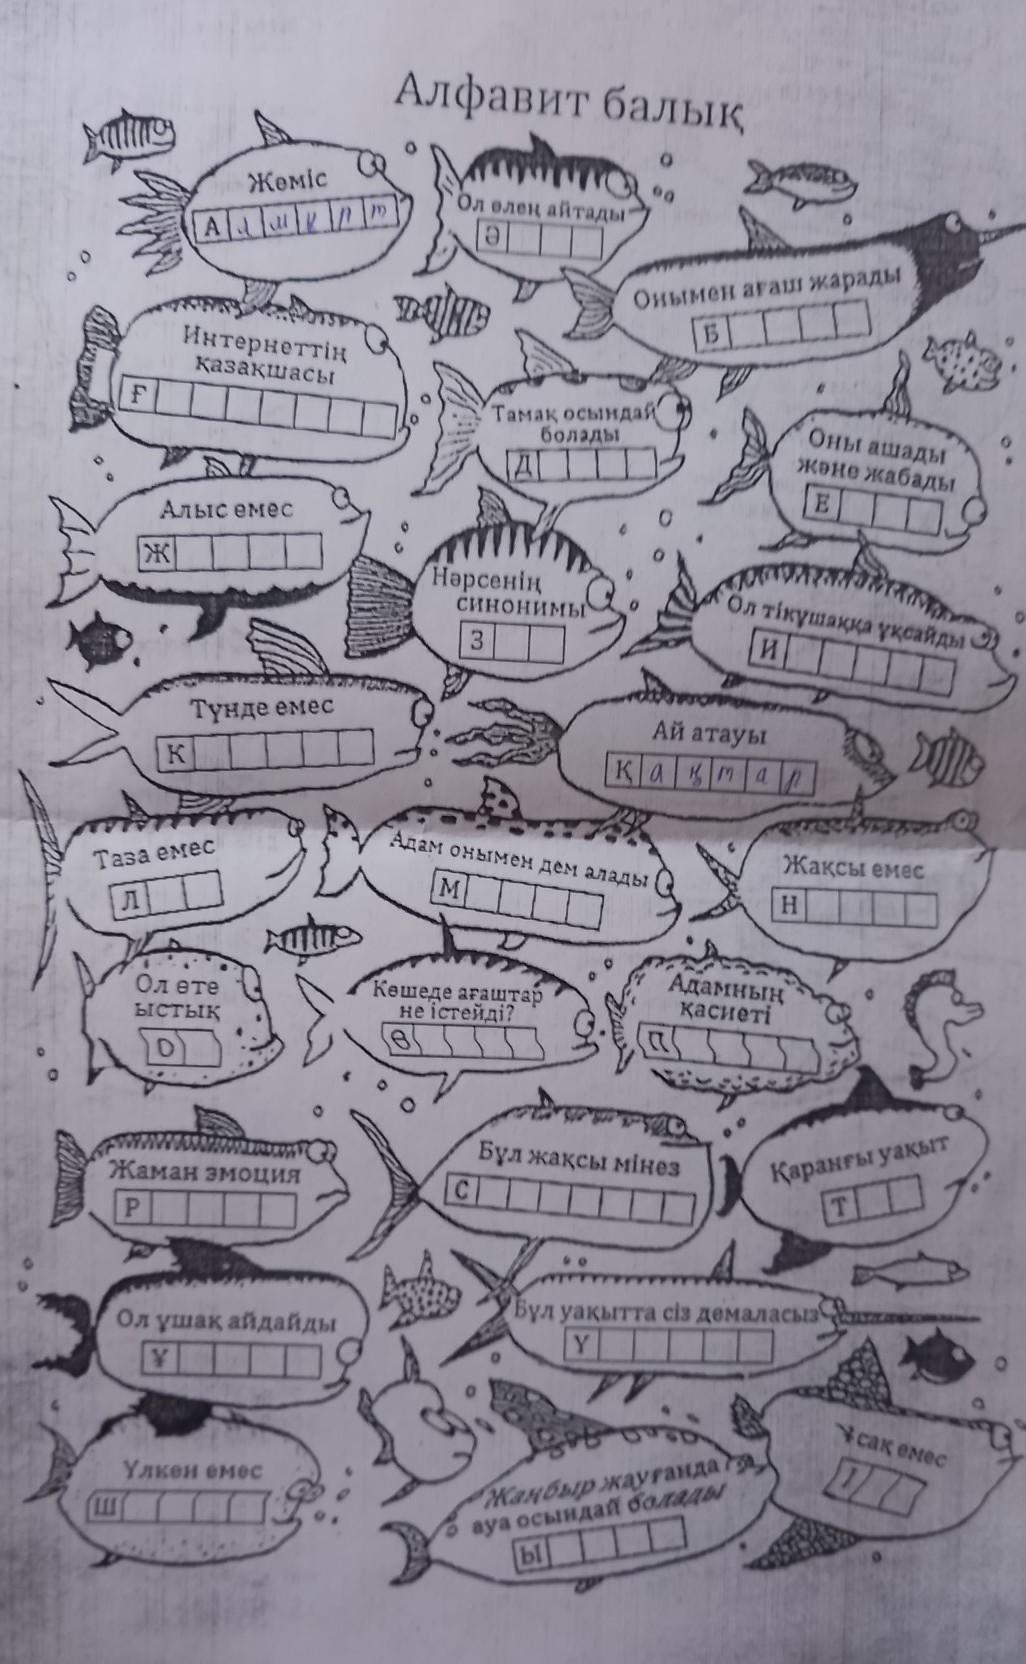 Алфавит балық
Жеміс
Алмұрт
Ол өлең айтады
Ә
Онымен ағаш жарады
Б
Интернеттің
қазақшасы
Ғ
Тамақ осындай
болады
Д
Оны ашады
және жабады
Е
Алыс емес
Ж
Нәрсенің
синонимы
З
Ол тікұшаққа ұқсайды
И
Түнде емес
К
Ай атауы
Қаңтар
Таза емес
Л
Адам онымен дем алады
М
Жақсы емес
Н
Ол өте
ыстық
О
Көшеде ағаштар
не істейді?
Ө
Адамның
қасиеті
П
Жаман эмоция
Р
Бұл жақсы мінез
С
Қараңғы уақыт
Т
Ол ұшақ айдайды
Ұ
Бұл уақытта сіз демаласыз
Ү
Үлкен емес
Ш
Жаңбыр жауғанда
ауа осындай болады
Ы
Ұсақ емес
І